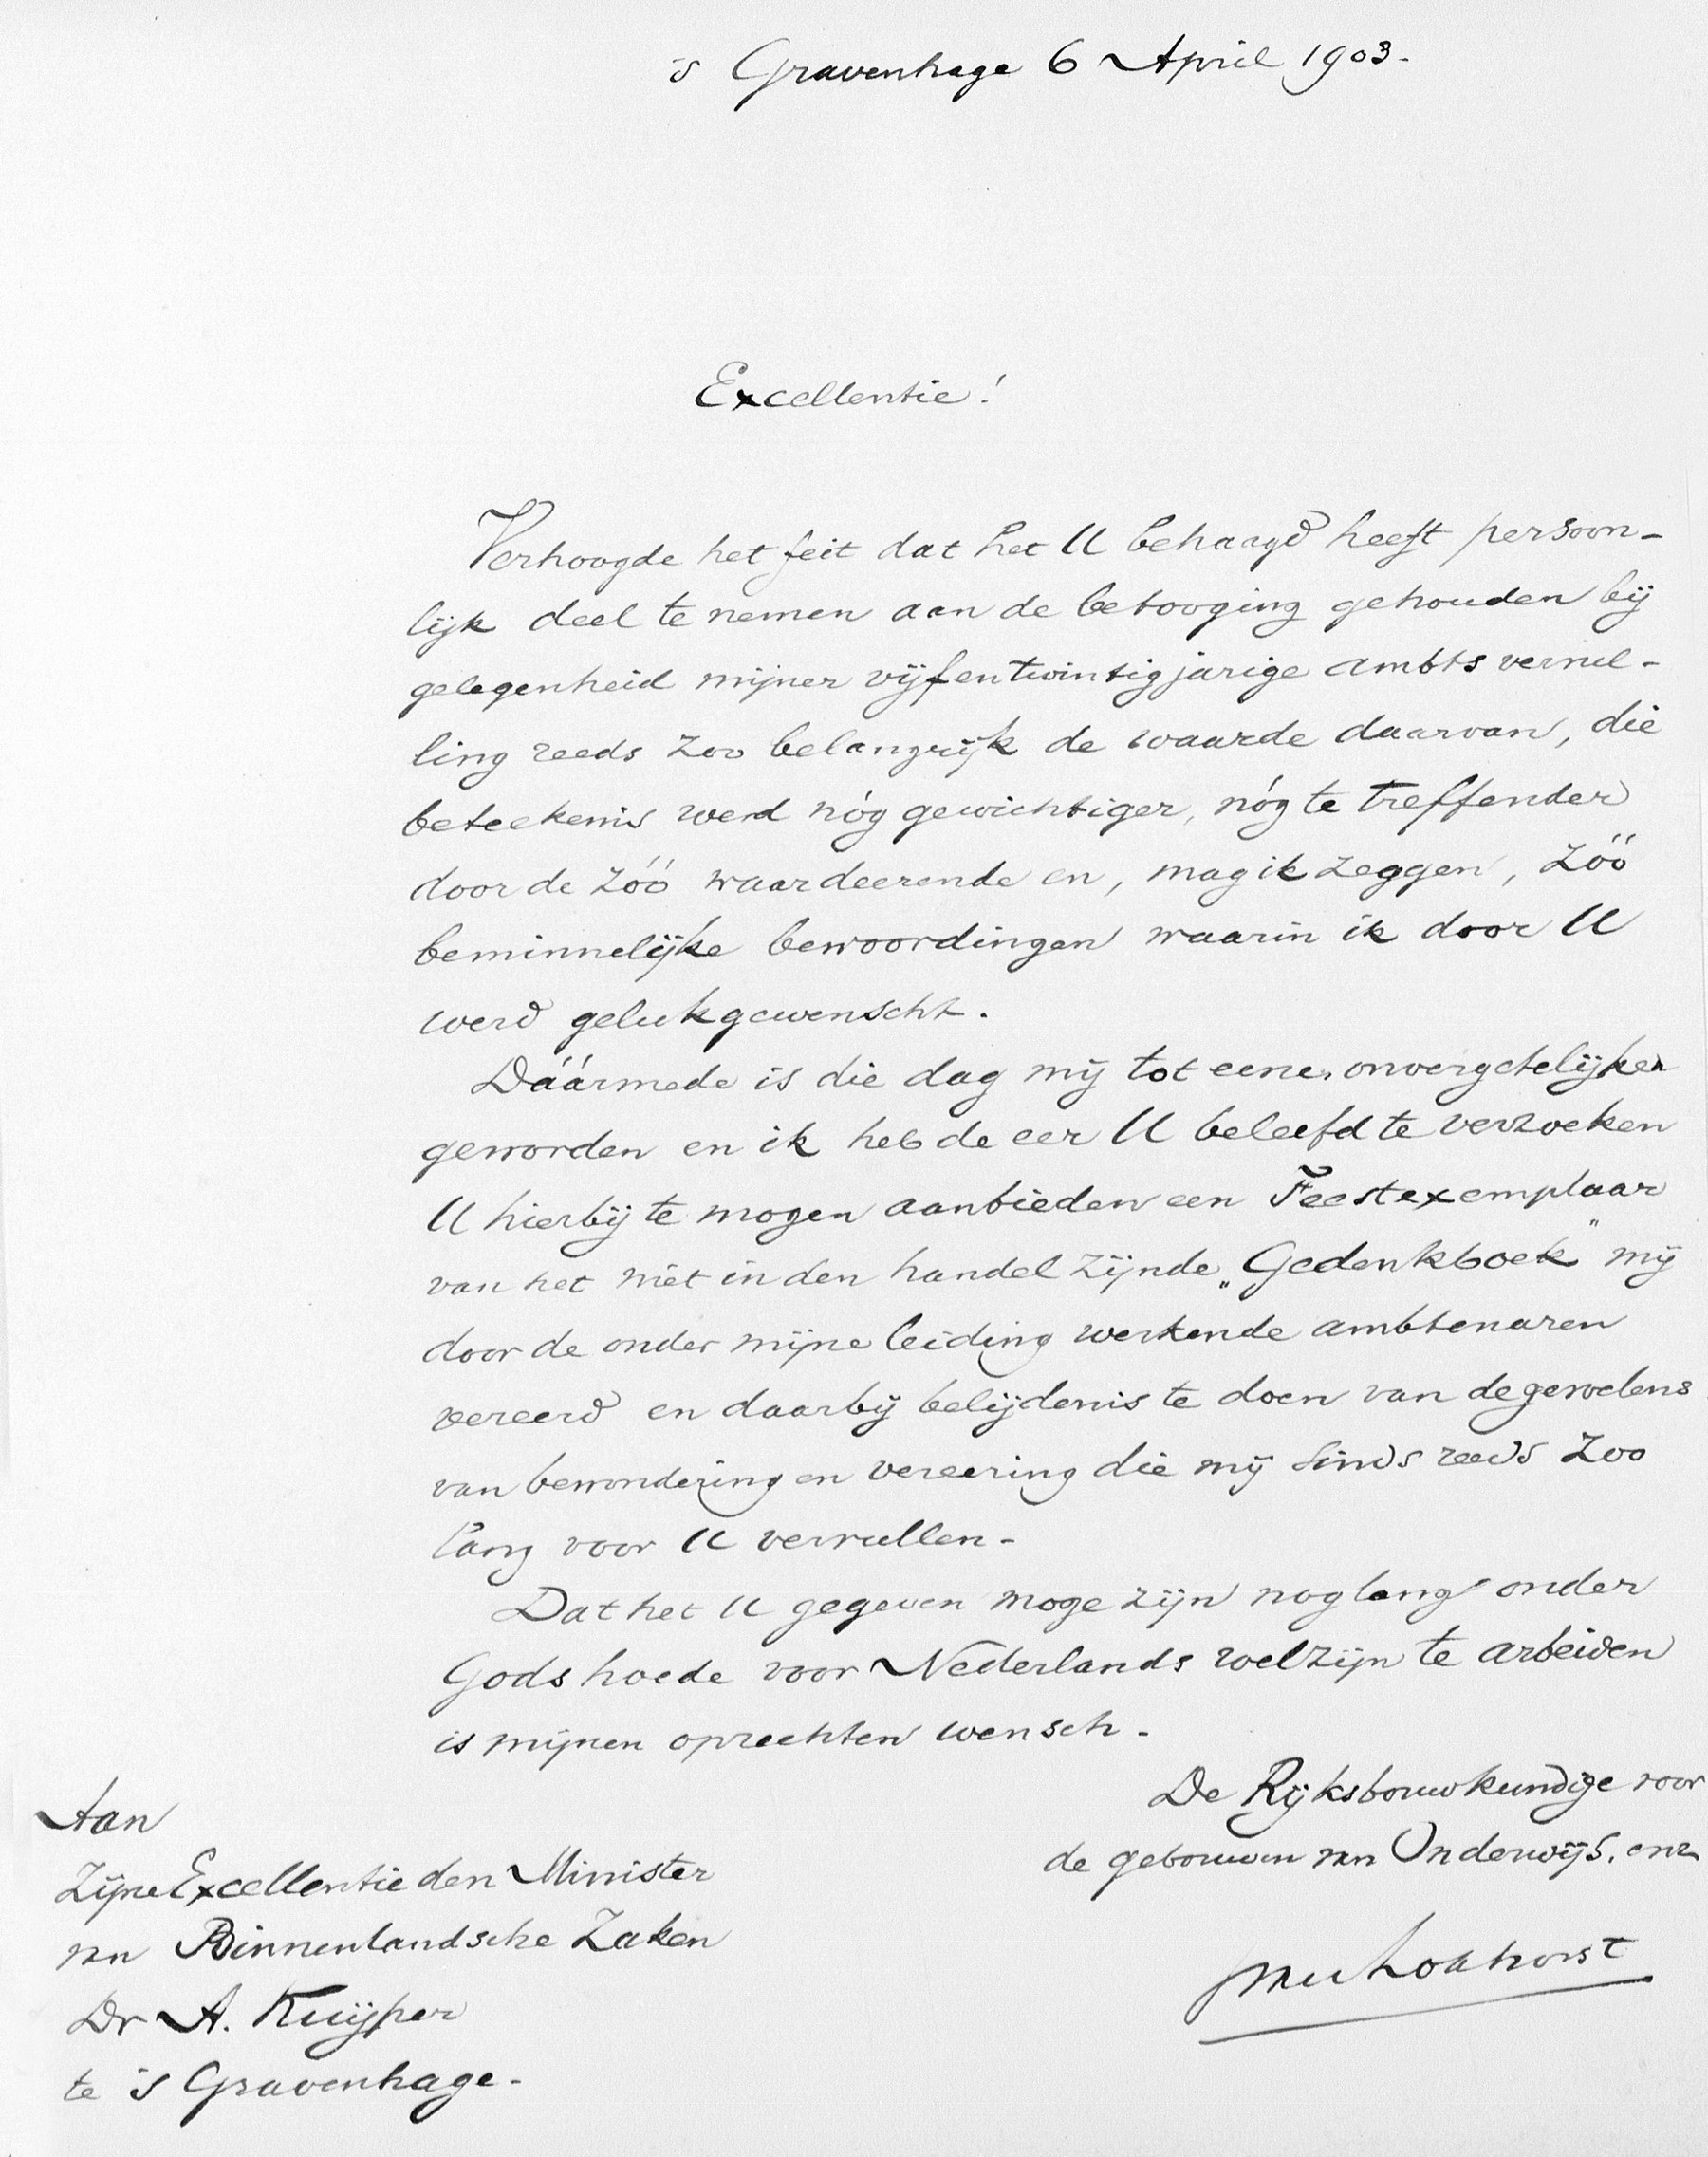 's Gravenhage 6 April 1903.
Excellentie!
Verhoogde het feit dat het U behaagd heeft persoon-
lijk deel te nemen aan de betooging gehouden bij
gelegenheid mijner vijfentwintigjarige ambtsvervul-
ling reeds zoo belangrijk de waarde daarvan, die
beteekenis werd nóg gewichtiger, nóg te treffender
door de zóó waardeerende en, mag ik zeggen, zóó
beminnelijke bewoordingen waarin ik door U
werd gelukgewenscht.
Dáármede is die dag mij tot eenen onvergetelijken
geworden en ik heb de eer U beleefd te verzoeken
U hierbij te mogen aanbieden een Feestexemplaar
van het niet in den handel zijnde „Gedenkboek" mij
door de onder mijne leiding werkende ambtenaren
vereerd en daarbij belijdenis te doen van de gevoelens
van bewondering en vereering die mij sinds reeds zoo
lang voor U vervullen.
Dat het U gegeven moge zijn nog lang onder
Gods hoede voor Nederlands welzijn te arbeiden
is mijnen oprechten wensch.
De Rijksbouwkundige voor
de gebouwen van Onderwijs, enz
JvLokhorst
Aan
Zijne Excellentie den Minister
van Binnenlandsche Zaken
Dr A. Kuijper
te 's Gravenhage.